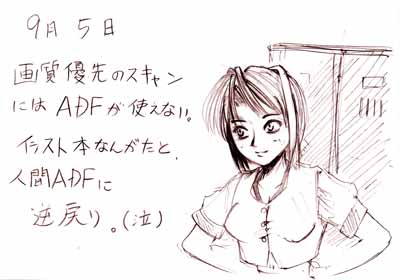 9月5日
画質優先のスキャン
にはADFが使えない。
イラスト本なんがだと、
人間ADFに
逆戻り。(泣)